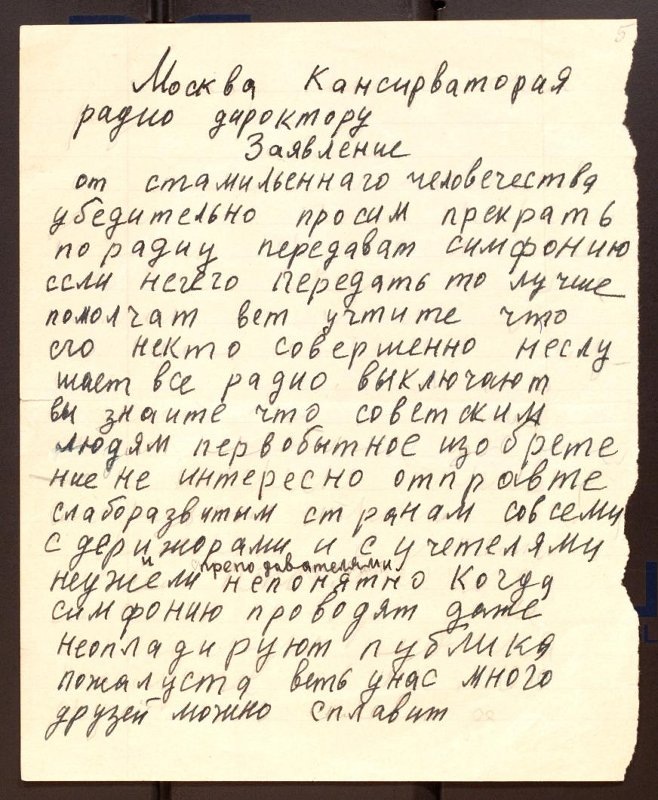 5
Москва Кансирватория
радио дароктору
Заявление
от стамильеннаго человечества
убедительно просим прекрать
по радиу передават симфонию
если нечего передать то лучше
помолчат вет учтите что
его некто совершенно неслу
шает все радио выключают
вы знаите что советским
людям первобытное изобрете
ние не интересно отправте
слаборазвитым странам совсеми
с дерижорами и с учетелями
и преподавателями
неужели непонятно когда
симфонию проводят даже
неопладируют публика
пожалуста веть унас много
друзей можно сплавит